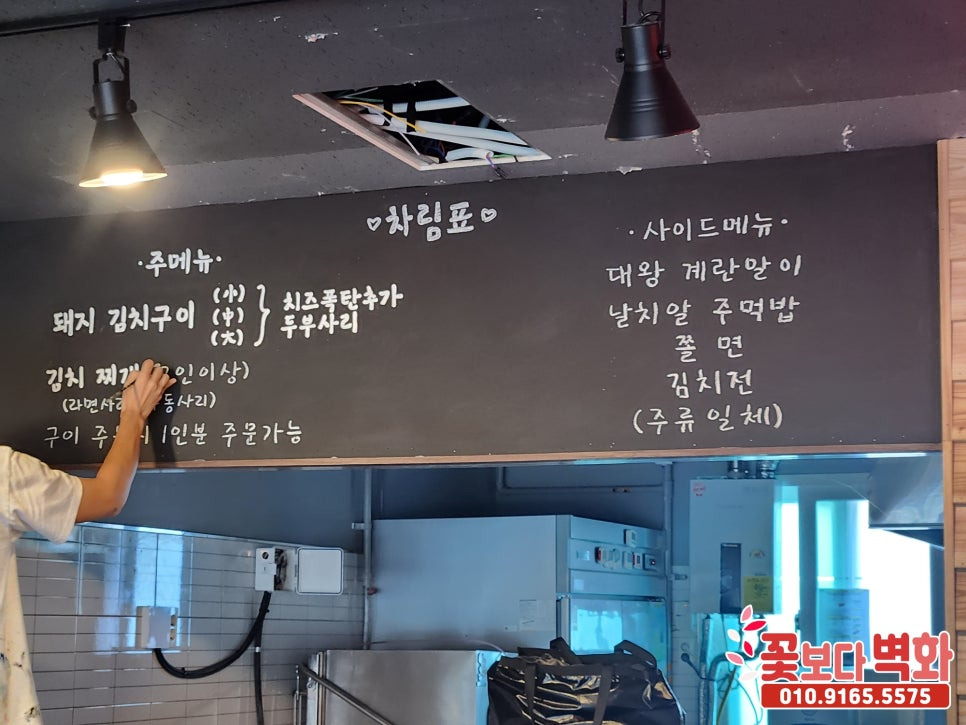 ♡차림표♡
·주메뉴·
돼지 김치구이 (小) (中) (大) } 치즈폭탄추가
두부사리
김치 찌개 인이상)
(라면사리 우동사리)
구이 주 1인분 주문가능
·사이드메뉴·
대왕 계란말이
날치알 주먹밥
쫄 면
김치전
(주류일체)
꽃보다벽화
010.9165.5575